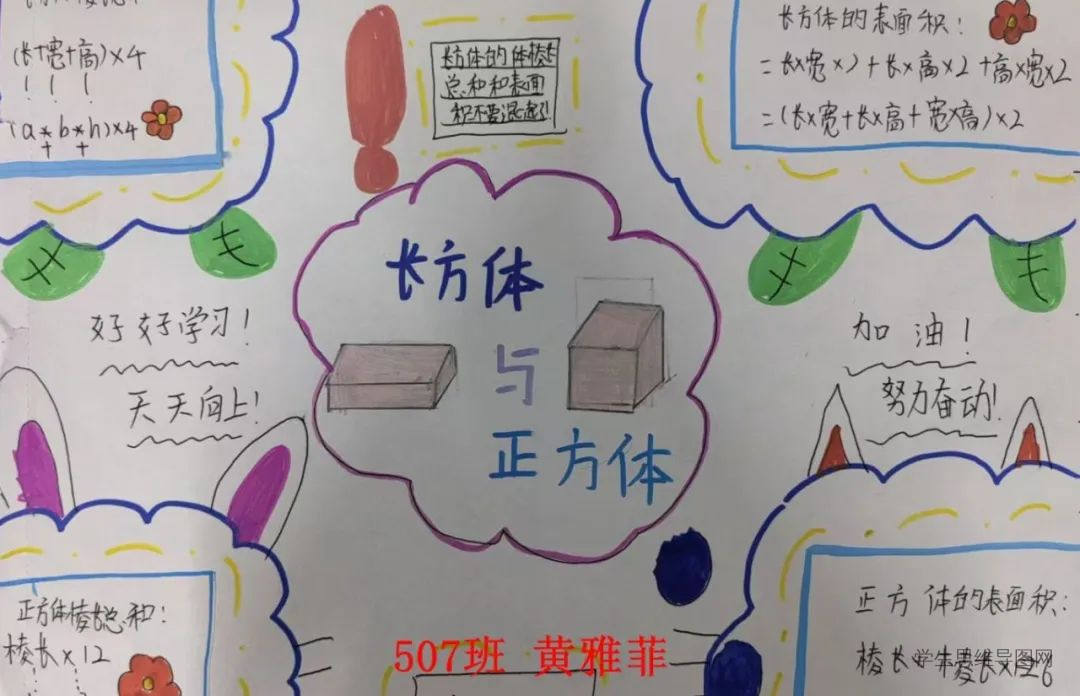 (长+宽+高)×4
(a*b*h)×4
+ +
长方体的体棱长
总和和表面
积不要混淆!
长方体的表面积:
=长×宽×2+长×高×2+高×宽×2
=(长×宽+长×高+宽×高)×2
长方体
与
正方体
好好学习!
天天向上!
加油!
努力奋动!
正方体棱长总和:
棱长×12
正方体的表面积:
棱长×棱长×6
507班 黄雅菲
学生思维导图网